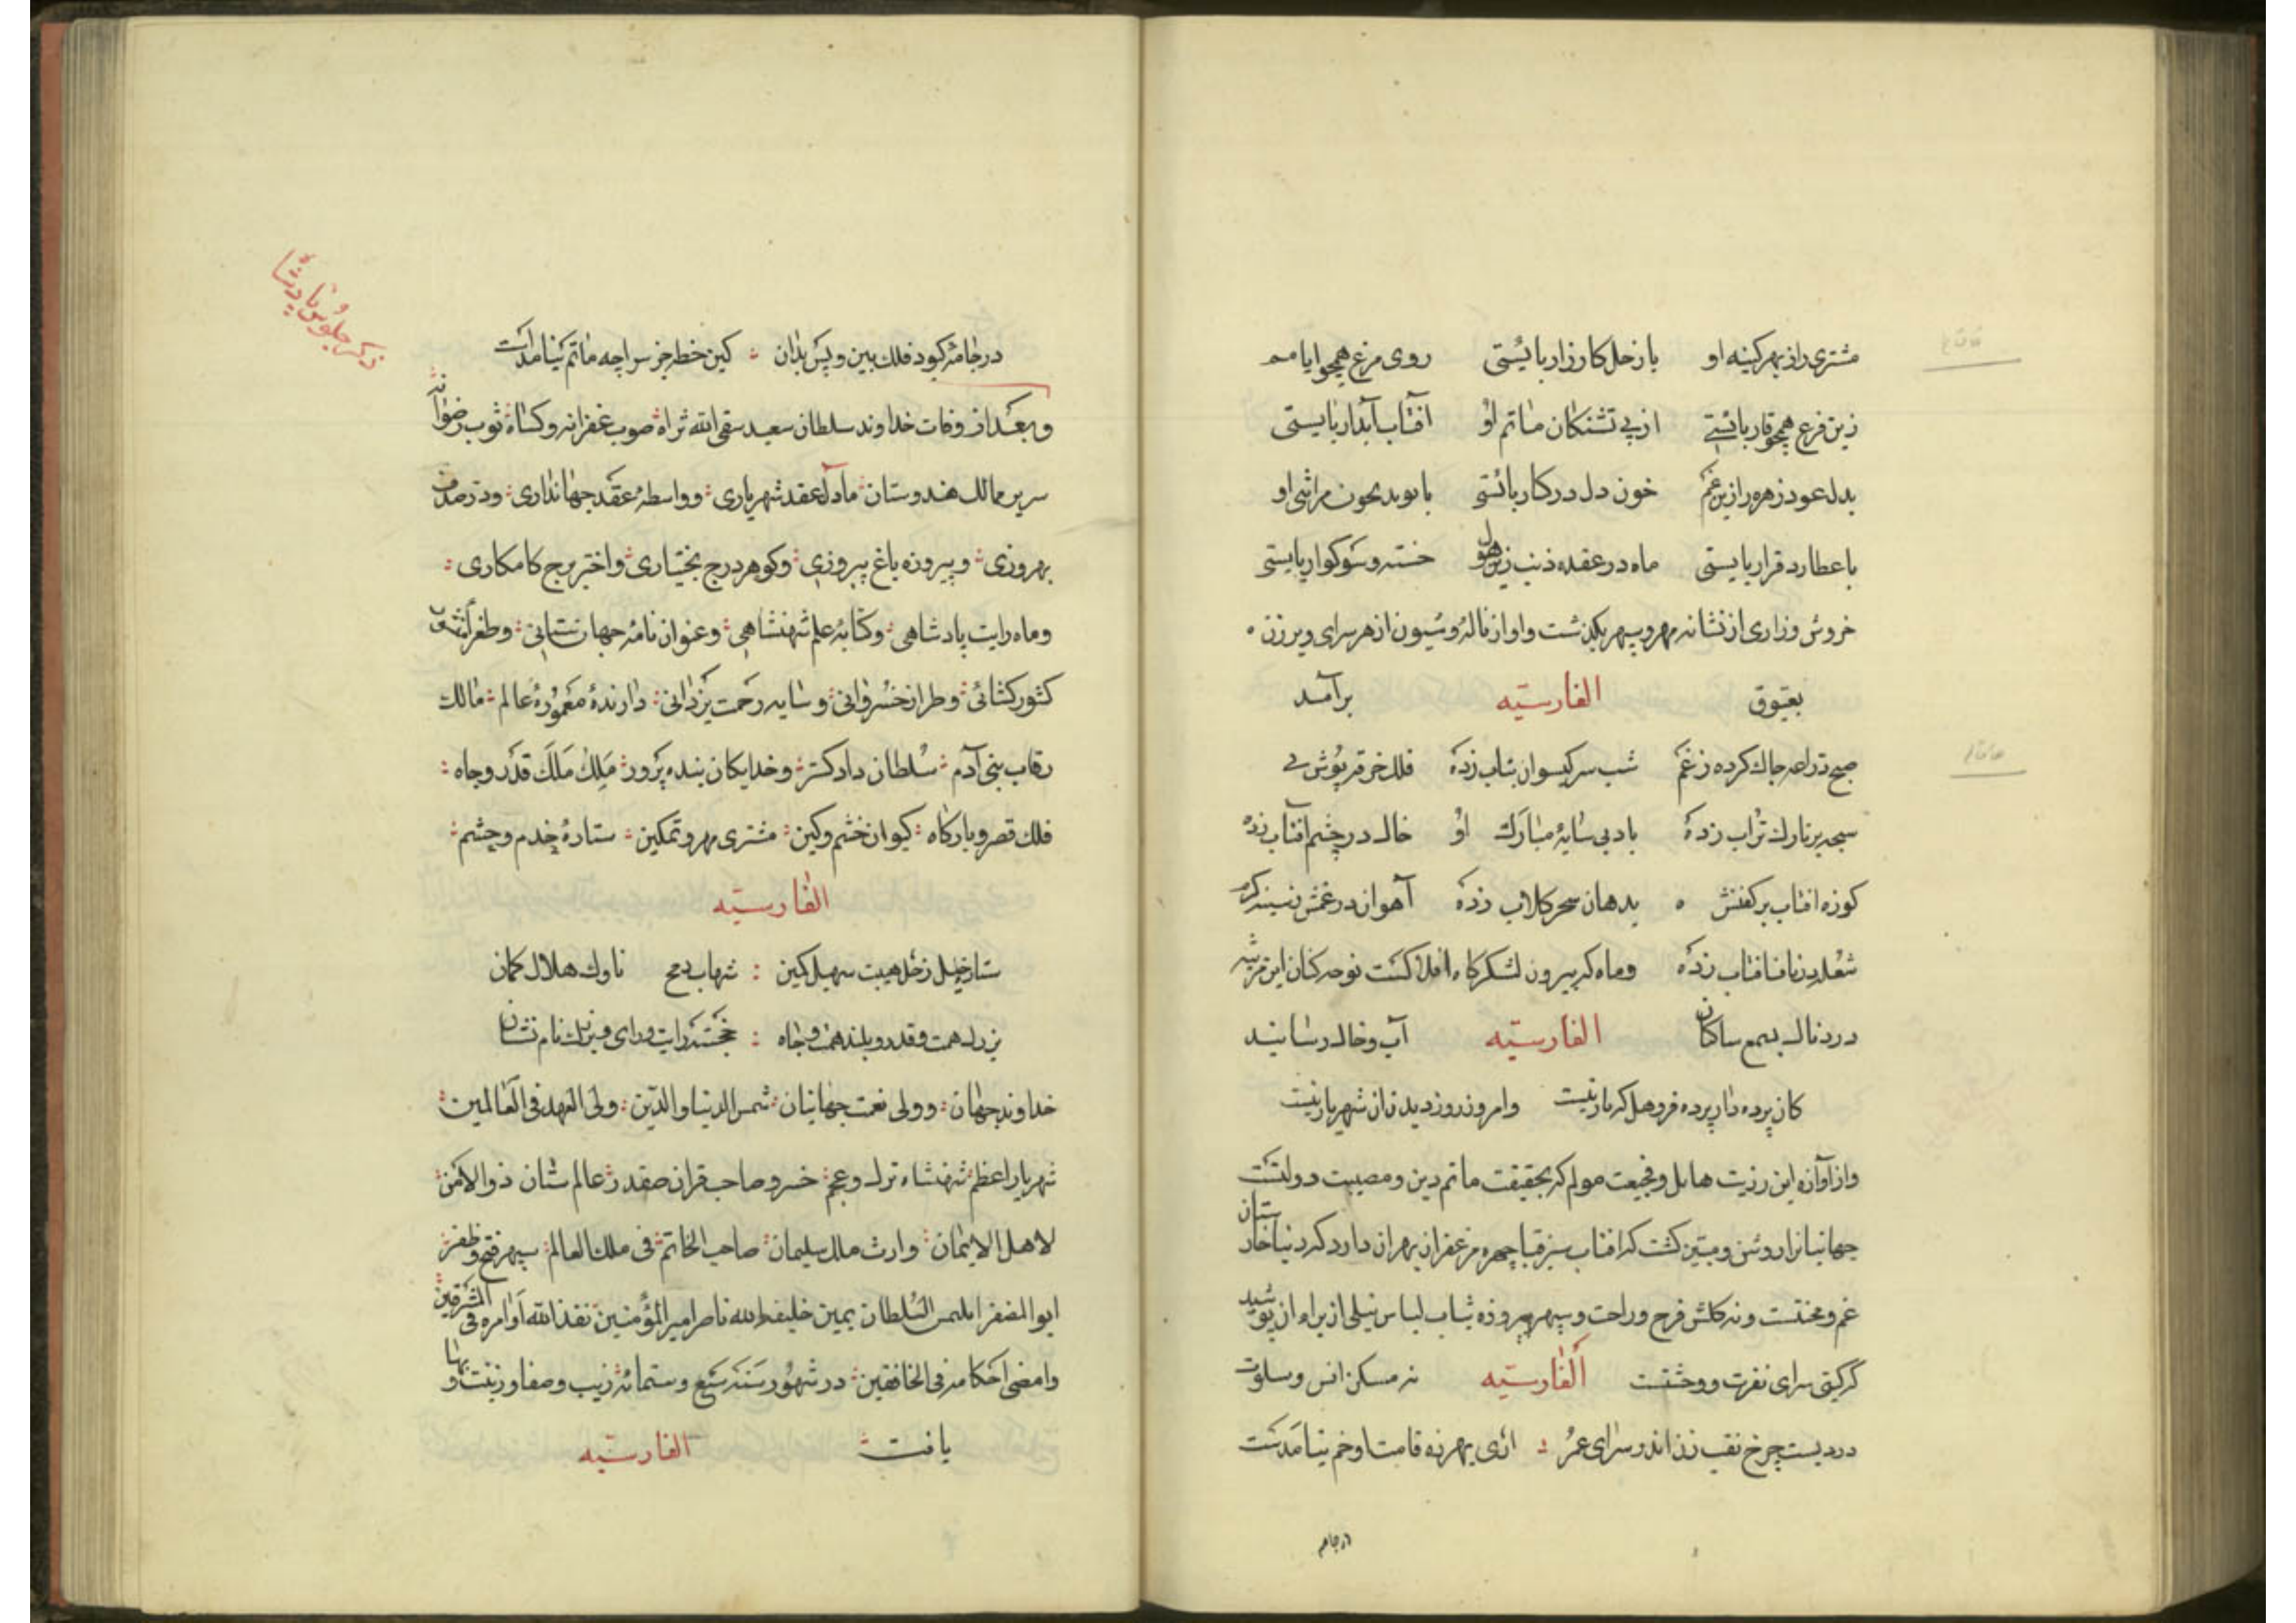 مشتری را از بهر کینه او   با زحل کارزار بایستی   روی مرغ همچو ایا مه
زین فرع همچو قار بایستی   از پی تشنکان ماتم او   آفتاب آبدار بایستی
بدل عود زهره را زین غم   خون دل در کنار بایستی   مراثی او
با عطارد قرار بایستی   ماه در عقده ذنب زین هول   خسته و سوکوار بایستی
خروش و زاری از نشانه مهر و سپهر بکذشت و اواز ناله و شیون از هر سرای و برزن
بعیوق   الفارسیّه   برآمد
صبح دراعه چاك کرده ز غم   شب سر کیسوان بتاب زده   فلك خرقه پوش
بر تارك تراب زده   باد بی سایۀ مبارك او   خاك در چشم افتاب زده
کوزه افتاب بر کفنش   بدهان سحر کلاب زده   آهوان در غمش ز سینه کرم
شعله در ناف افتاب زده   و ماه که بیرون لشکرکاه افلاکست نوحه کنان این مرثیه
دردناك بسمع ساکنان   الفارسیّه   آب و خاك رسانید
کان پرده دار پرده فروهل که بار نیست   وامروز روز دیدن آن شهریار نیست
و از آوازه این رزیت هایل و فجیعت مولم که بحقیقت ماتم دین و مصیبت دولتست
جهانیانرا روشن و مبین کشت که افتاب سبز قبا چهره مزعفر از بهر آن دارد که دنیا خارستان
غم و محنتست و نه کلشن فرح و راحت و سپهر پیروزه ثیاب لباس نیلی از برای آن پوشید
که کیتی سرای نفرت و وحشتست   الفارسیّه   نه مسکن انس و سلوت
دردیست چرخ نقب زن اندر سرای عمر   آری بهرزه قامت او خم نیامدست
در جامه
در جامۀ کبود فلك بین و پس بدان   کین خطه جز سراچه ماتم نیامدست
ذکر جلوس پادشا
و بعد از وفات خداوند سلطان سعید سقی الله ثراه صوب غفرانه و کساه ثوب رضوانه
سریر ممالك هندوستان عقد شهریاری و واسطۀ عقد جهانداری و در صدف
بهروزی و پیروزه باغ پیروزی و کوهر درج بختیاری و اختر برج کامکاری
و ماه رایت پادشاهی و کتابۀ علم شهنشاهی و عنوان نامۀ جهان ستانی و طغرای
کشور کشائی و طراز خسروانی و سایه رحمت یزدانی دارندۀ معمورۀ عالم مالك
رقاب بنی آدم سلطان دادکستر و خدایکان بنده پرور ملك ملك قدر و جاه
فلك قصر و بارکاه کیوان خشم و کین مشتری مهر و تمکین ستارۀ خدم و حشم
الفارسیّه
ستاره خیل زحل هیبت سهیل کین   شهاب رمح   ناوك هلال کمان
بزرك همت و قدر و بلند همت و جاه   خجسته رایت و رای و بزرك نام و نشان
خداوند جهان و ولی نعمت جهانیان شمس الدنیا و الدّین ولی العهد فی العالمین
شهریار اعظم شهنشاه ترك و عجم خسرو صاحب قران صفدر عالم ستان ذو الامن
لاهل الایمان وارث ملك سلیمان صاحب الخاتم فی ملك العالم سپهر فتح و ظفر
ابو المضفر ایلتمش السلطان یمین خلیفة الله ناصر امیر المؤمنین نفذ الله اوامره فی المشرقین
و امضی احکامه فی الخافقین در شهور سنه سبع و ستمائه زیب و صفا و زینت و بها
یافت   الفارسیّه